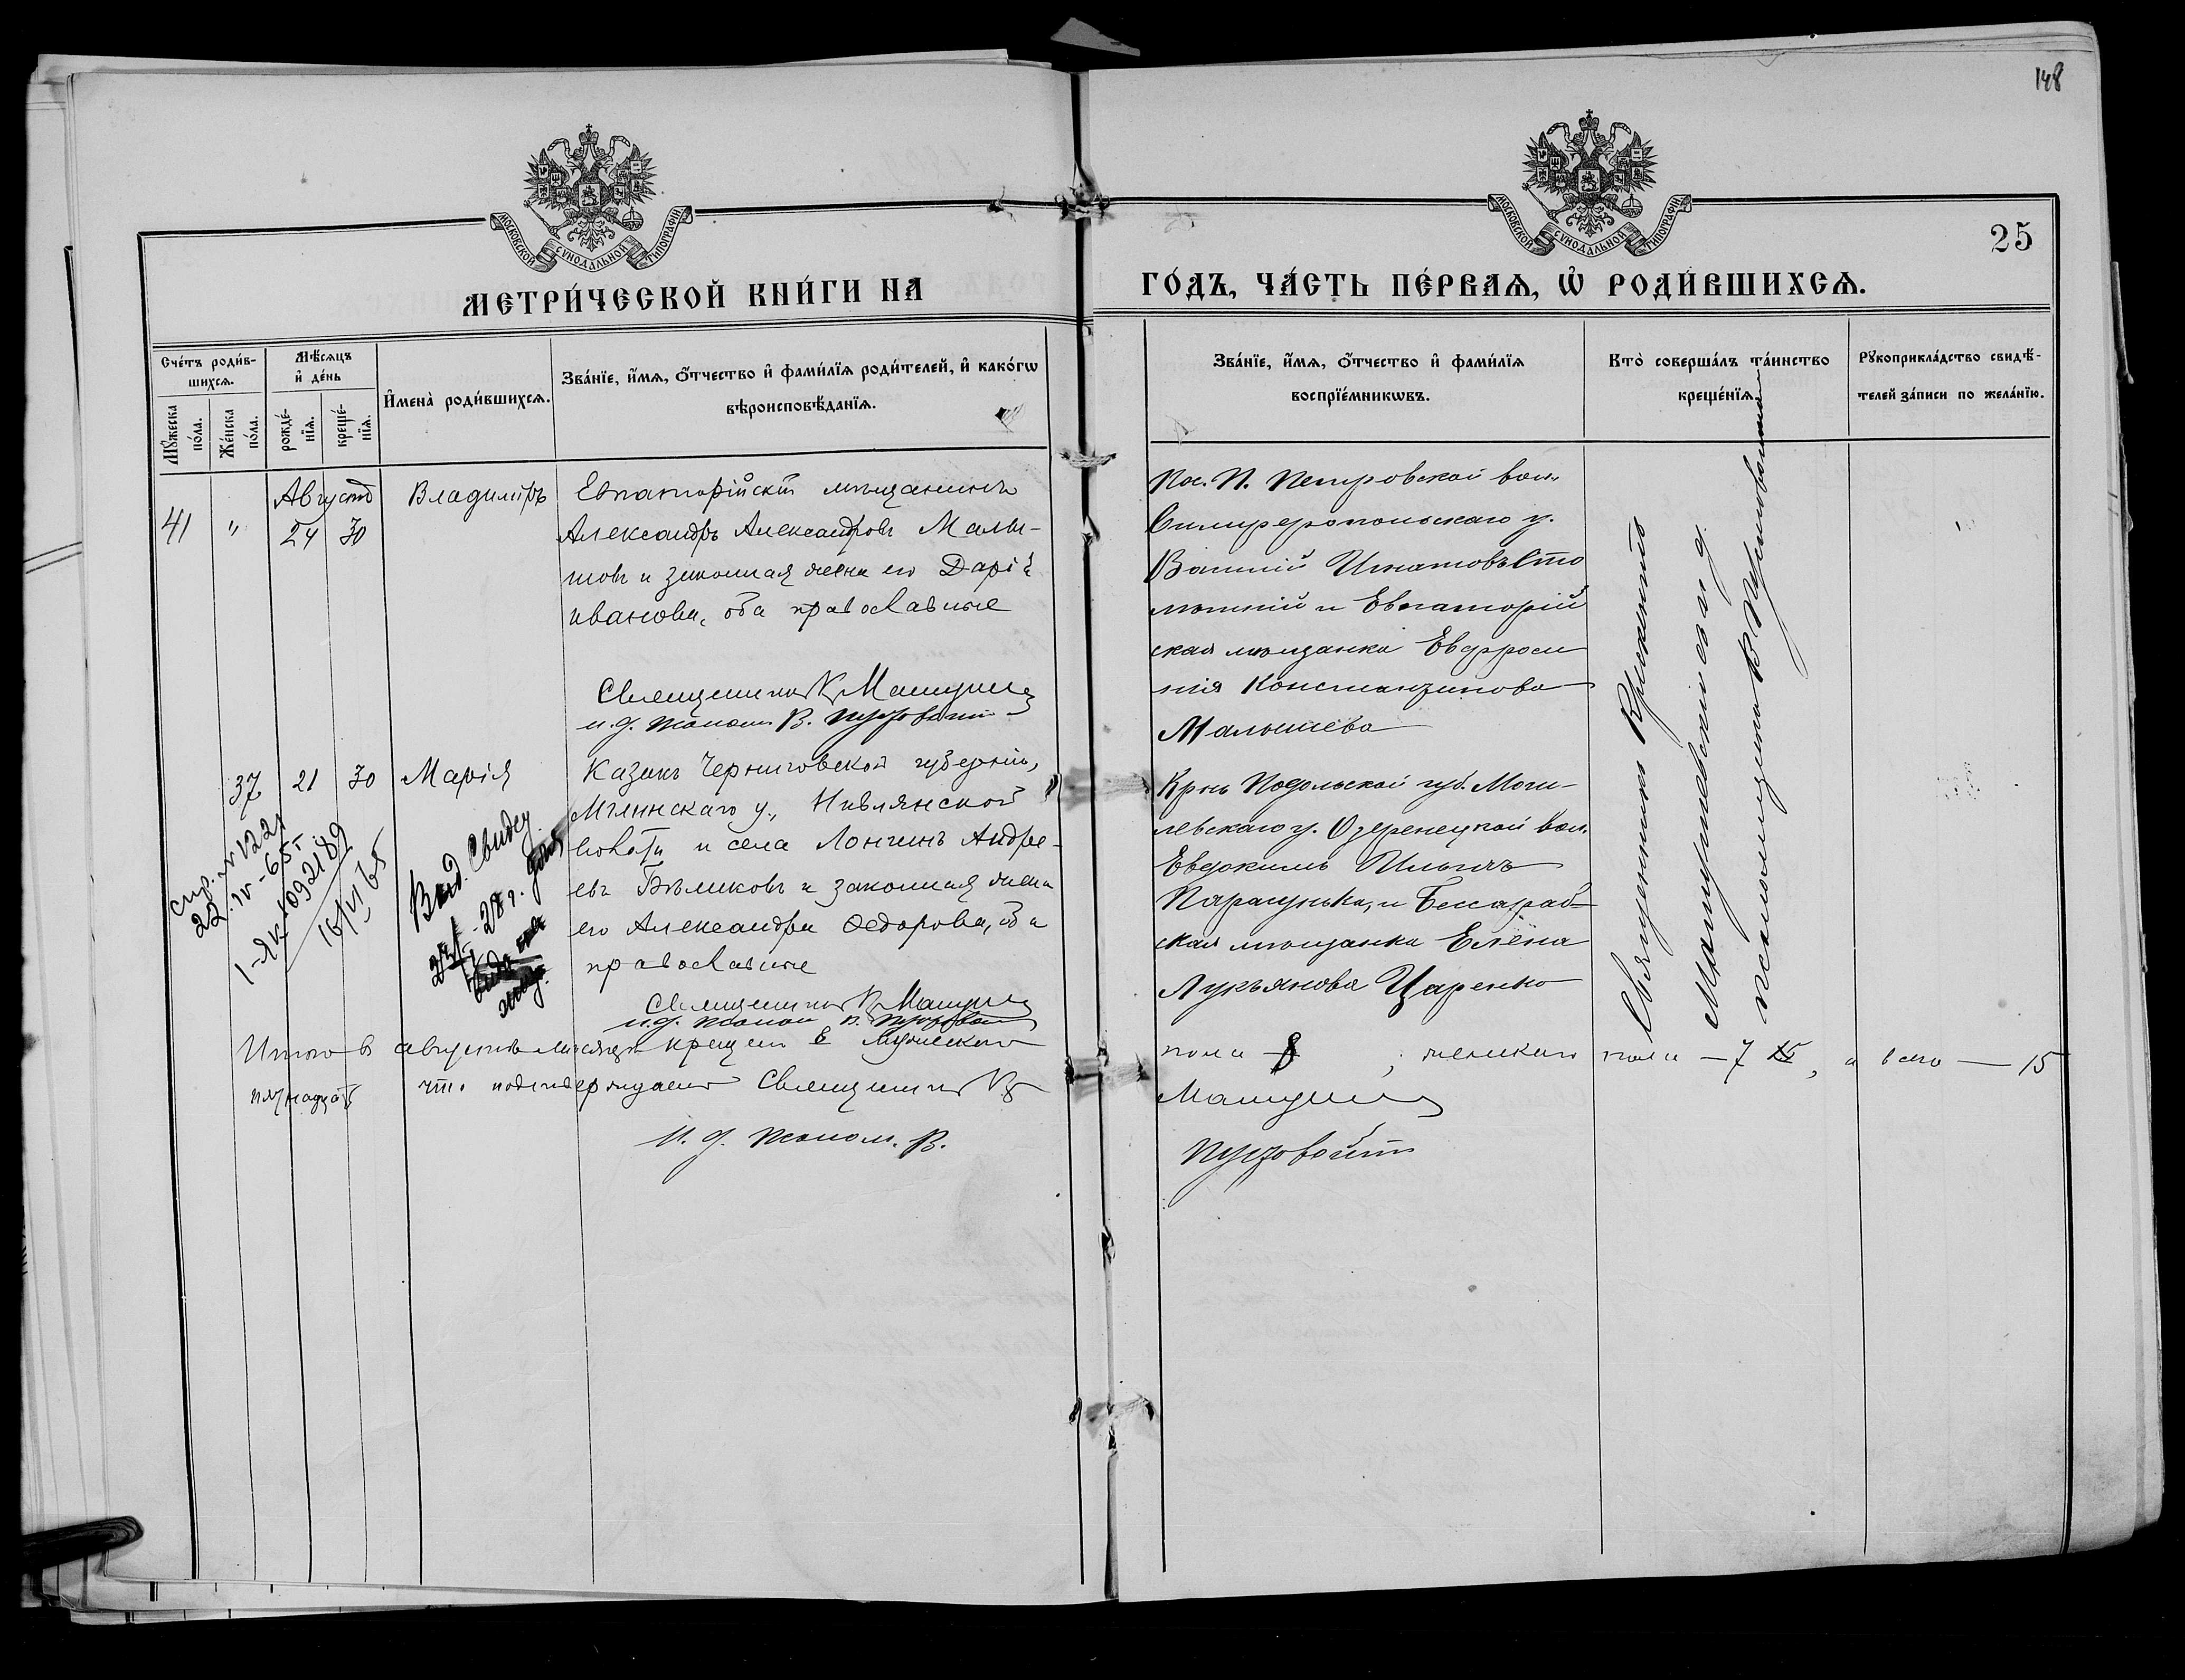 148
МОСКОВСКОЙ СѴНОДАЛЬНОЙ ТИПОГРАФІИ
МОСКОВСКОЙ СѴНОДАЛЬНОЙ ТИПОГРАФІИ
25
МЕТРИ́ЧЕСКОЙ КНИ́ГИ НА
ГО́ДЪ, ЧА́СТЬ ПЕ́РВАѦ, Ѽ РОДИ́ВШИХСѦ.
Сче́тъ роди́в-
шихсѧ.
Мꙋ́жеска по́ла.
Же́нска по́ла.
Мѣ́сѧцъ
и҆ де́нь
рожде́-
нїѧ.
креще́-
нїѧ.
И҆мена̀ роди́вшихсѧ.
Зва́нїе, и҆́мѧ, ѻ҆́тчество и҆ фами́лїѧ роди́телей, и҆ како́гѡ
вѣроисповѣ́данїѧ.
Зва́нїе, и҆́мѧ, ѻ҆́тчество и҆ фами́лїѧ
воспрїе́мникѡвъ.
Кто̀ соверша́лъ та́инство
креще́нїѧ.
Рꙋкоприкла́дство свидѣ́-
телей за́писи по жела́нїю.
Августъ
41 " 24 30
Владиміръ
Евпаторійскій мѣщанинъ
Александръ Александровъ Малы-
шовъ и законная жена его Дарія
Иванова, оба православные
Священникъ К Мацуш
и. д. псалом. В. Пустовойт
Пос. Н. Петровской вол.
Симферопольскаго у.
Игнатовъ
и Евпаторій
ская мѣщанка Евфроси
нія Константинова
Малышева
37 21 30
Марія
Казакъ Черниговской губерніи,
Мглинскаго у., Нивлянской
волости и села Лонгинъ Андре-
евъ Бѣликовъ и законная жена
его Александра Ѳедорова, оба
православные
Священникъ К Мацуш
и. д. псалом. В. Пустовойт
Крнъ Подольской губ. Моги-
левскаго у. Озеренецкой вол.
Евдокимъ Ильичъ
и Бессараб-
ская мѣщанка Елена
Лукьянова Царенко
Спр. № 1221
22.IV-65 г
I-ЯК 1092189
16/VI 65
Выд. Свидет
28 г.
Священникъ
и. д.
псаломщика В Пустовойтъ
Итого въ августѣ мѣсяцѣ крещено мужескаго
пола 8 , женскаго пола — 7 , а всего — 15
пятнадцать что подтверждаемъ Священникъ К
Мацуш
И. д. псалом. В.
Пустовойт